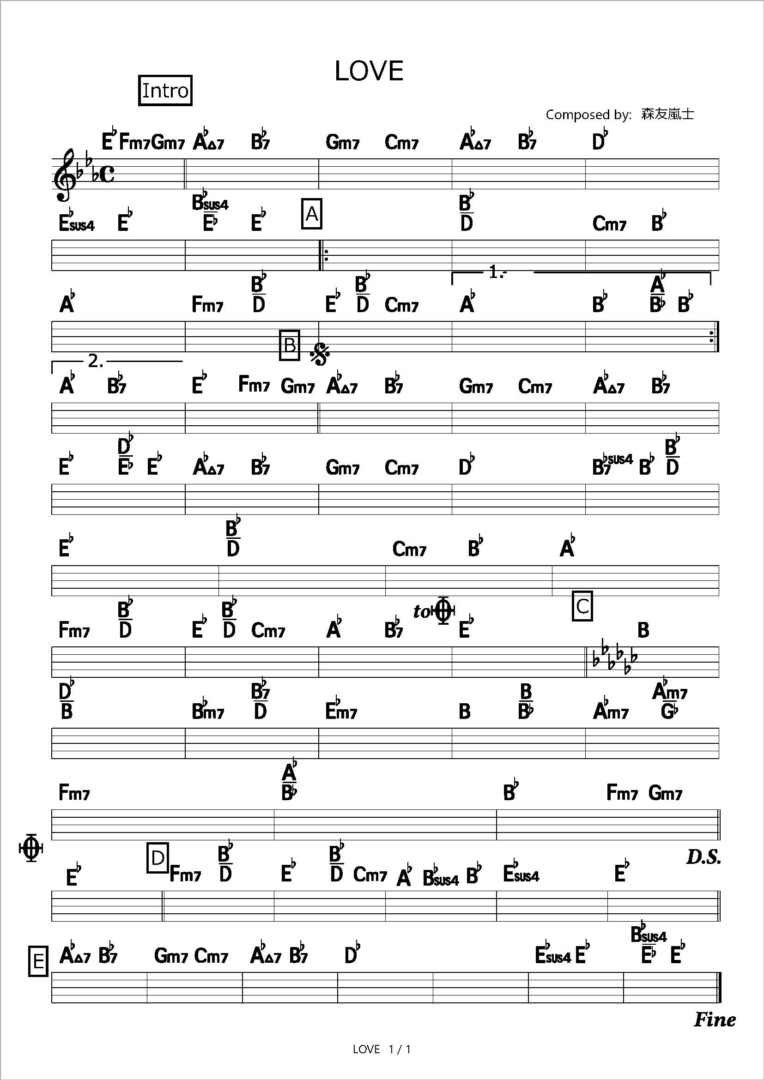 LOVE
Intro
Composed by: 森友嵐士
E♭ Fm7 Gm7 A♭△7 B♭7 Gm7 Cm7 A♭△7 B♭7 D♭
E♭sus4 E♭ B♭sus4/E♭ E♭ A B♭/D Cm7 B♭
1.-
A♭ Fm7 B♭/D E♭ B♭/D Cm7 A♭ B♭ A♭/B♭ B♭
2. B
A♭ B♭7 E♭ Fm7 Gm7 A♭△7 B♭7 Gm7 Cm7 A♭△7 B♭7
E♭ D♭/E♭ E♭ A♭△7 B♭7 Gm7 Cm7 D♭ B♭7sus4 B♭ B♭/D
E♭ B♭/D Cm7 B♭ A♭
to C
Fm7 B♭/D E♭ B♭/D Cm7 A♭ B♭7 E♭ B
D♭/B B♭m7 B♭7/D E♭m7 B B/B♭ A♭m7 A♭m7/G♭
Fm7 A♭/B♭ B♭ Fm7 Gm7
D.S.
E♭ D Fm7 B♭/D E♭ B♭/D Cm7 A♭ B♭sus4 B♭ E♭sus4 E♭
E A♭△7 B♭7 Gm7 Cm7 A♭△7 B♭7 D♭ E♭sus4 E♭ B♭sus4/E♭ E♭
Fine
LOVE 1 / 1